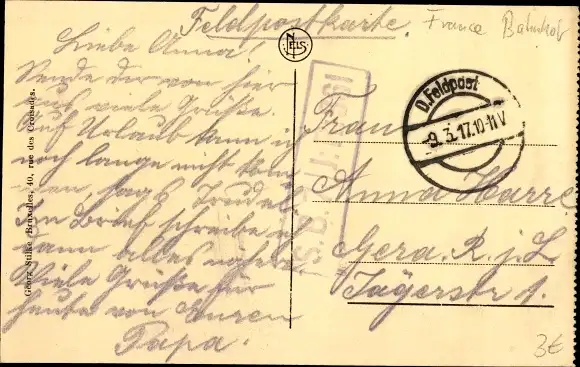 Feldpostkarte.
France Bahnhof
Liebe Anna!
Sende dir von hier
aus viele Grüße.
Auf Urlaub kann ich
noch lange nicht kom-
men, sag's Trudel.
Im Brief schreibe ich
dann alles näher.
Viele Grüße für
heute von Euren
Papa.
NELS
D. Feldpost
9.3.17.10-11V
Frau
Anna Harre
Gera. R. j. L.
Jägerstr 1.
Georg Stilke, Bruxelles, 40, rue des Croisades.
3€